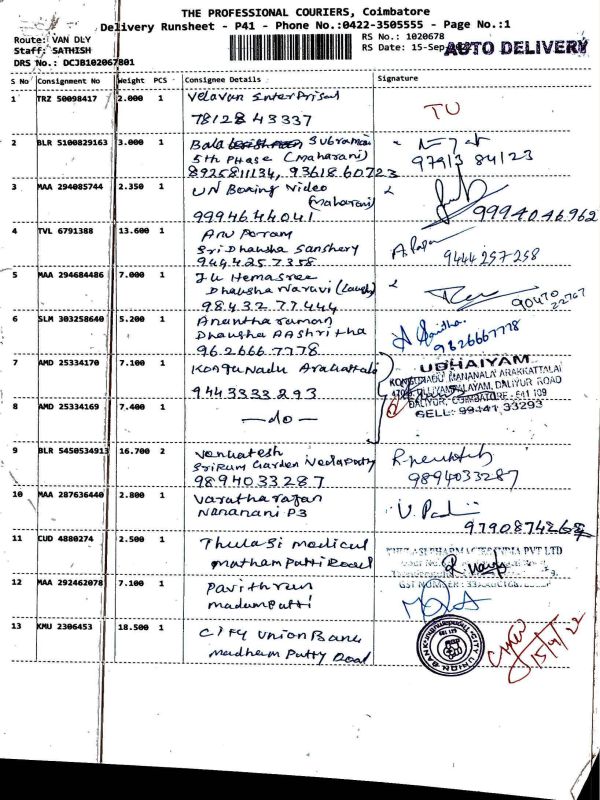 THE PROFESSIONAL COURIERS, Coimbatore
Delivery Runsheet - P41 - Phone No.:0422-3505555 - Page No.:1
Route: VAN DLY
RS No.: 1020678
Staff: SATHISH
RS Date: 15-Sep
AUTO DELIVERY
DRS No.: DCJB102067801
S No Consignment No Weight PCS Consignee Details Signature
1 TRZ 50098417 2.000 1 Velavan Enterprises
78128 43337
TU
2 BLR 5100829163 3.000 1 Bala Subramani
5th Phase (Maharani)
8925811134, 93618 60723
97913 84123
3 MAA 294085744 2.350 1 UN Boxing Video
(Maharani)
9994644041
9994046962
4 TVL 6791388 13.600 1
Sri Dhaksha Sanshery
9444257358
9444257258
5 MAA 294684486 7.000 1 Hemasree
Dhaksha Naruvi
98432 77444
90470
22767
6 SLM 303258640 5.200 1 Anantharaman
Dhaksha Aashritha
96.26667778
9626667778
7 AMD 25334170 7.100 1 Kongunadu Arakattalai
9443333293
UDHAIYAM
KONGUNADU MANANALA ARAKKATTALAI
DALIYUR ROAD
DALIYUR, COIMBATORE - 641 109
CELL: 99141 33293
8 AMD 25334169 7.400 1 —do—
9 BLR 5450534913 16.700 2 Venkatesh
Sri Ram Garden Vedapatty
9894033287
9894033287
10 MAA 287636440 2.800 1 Varatharajan
Nananani P3
9790874268
11 CUD 4880274 2.500 1 Thulasi medical
matham Patti Road
THULASI PHARMACIES INDIA PVT LTD
12 MAA 292462078 7.100 1 Pavithran
madampatti
13 KMU 2306453 18.500 1 City Union Bank
madham Patty Road
CITY UNION BANK
15/9/22